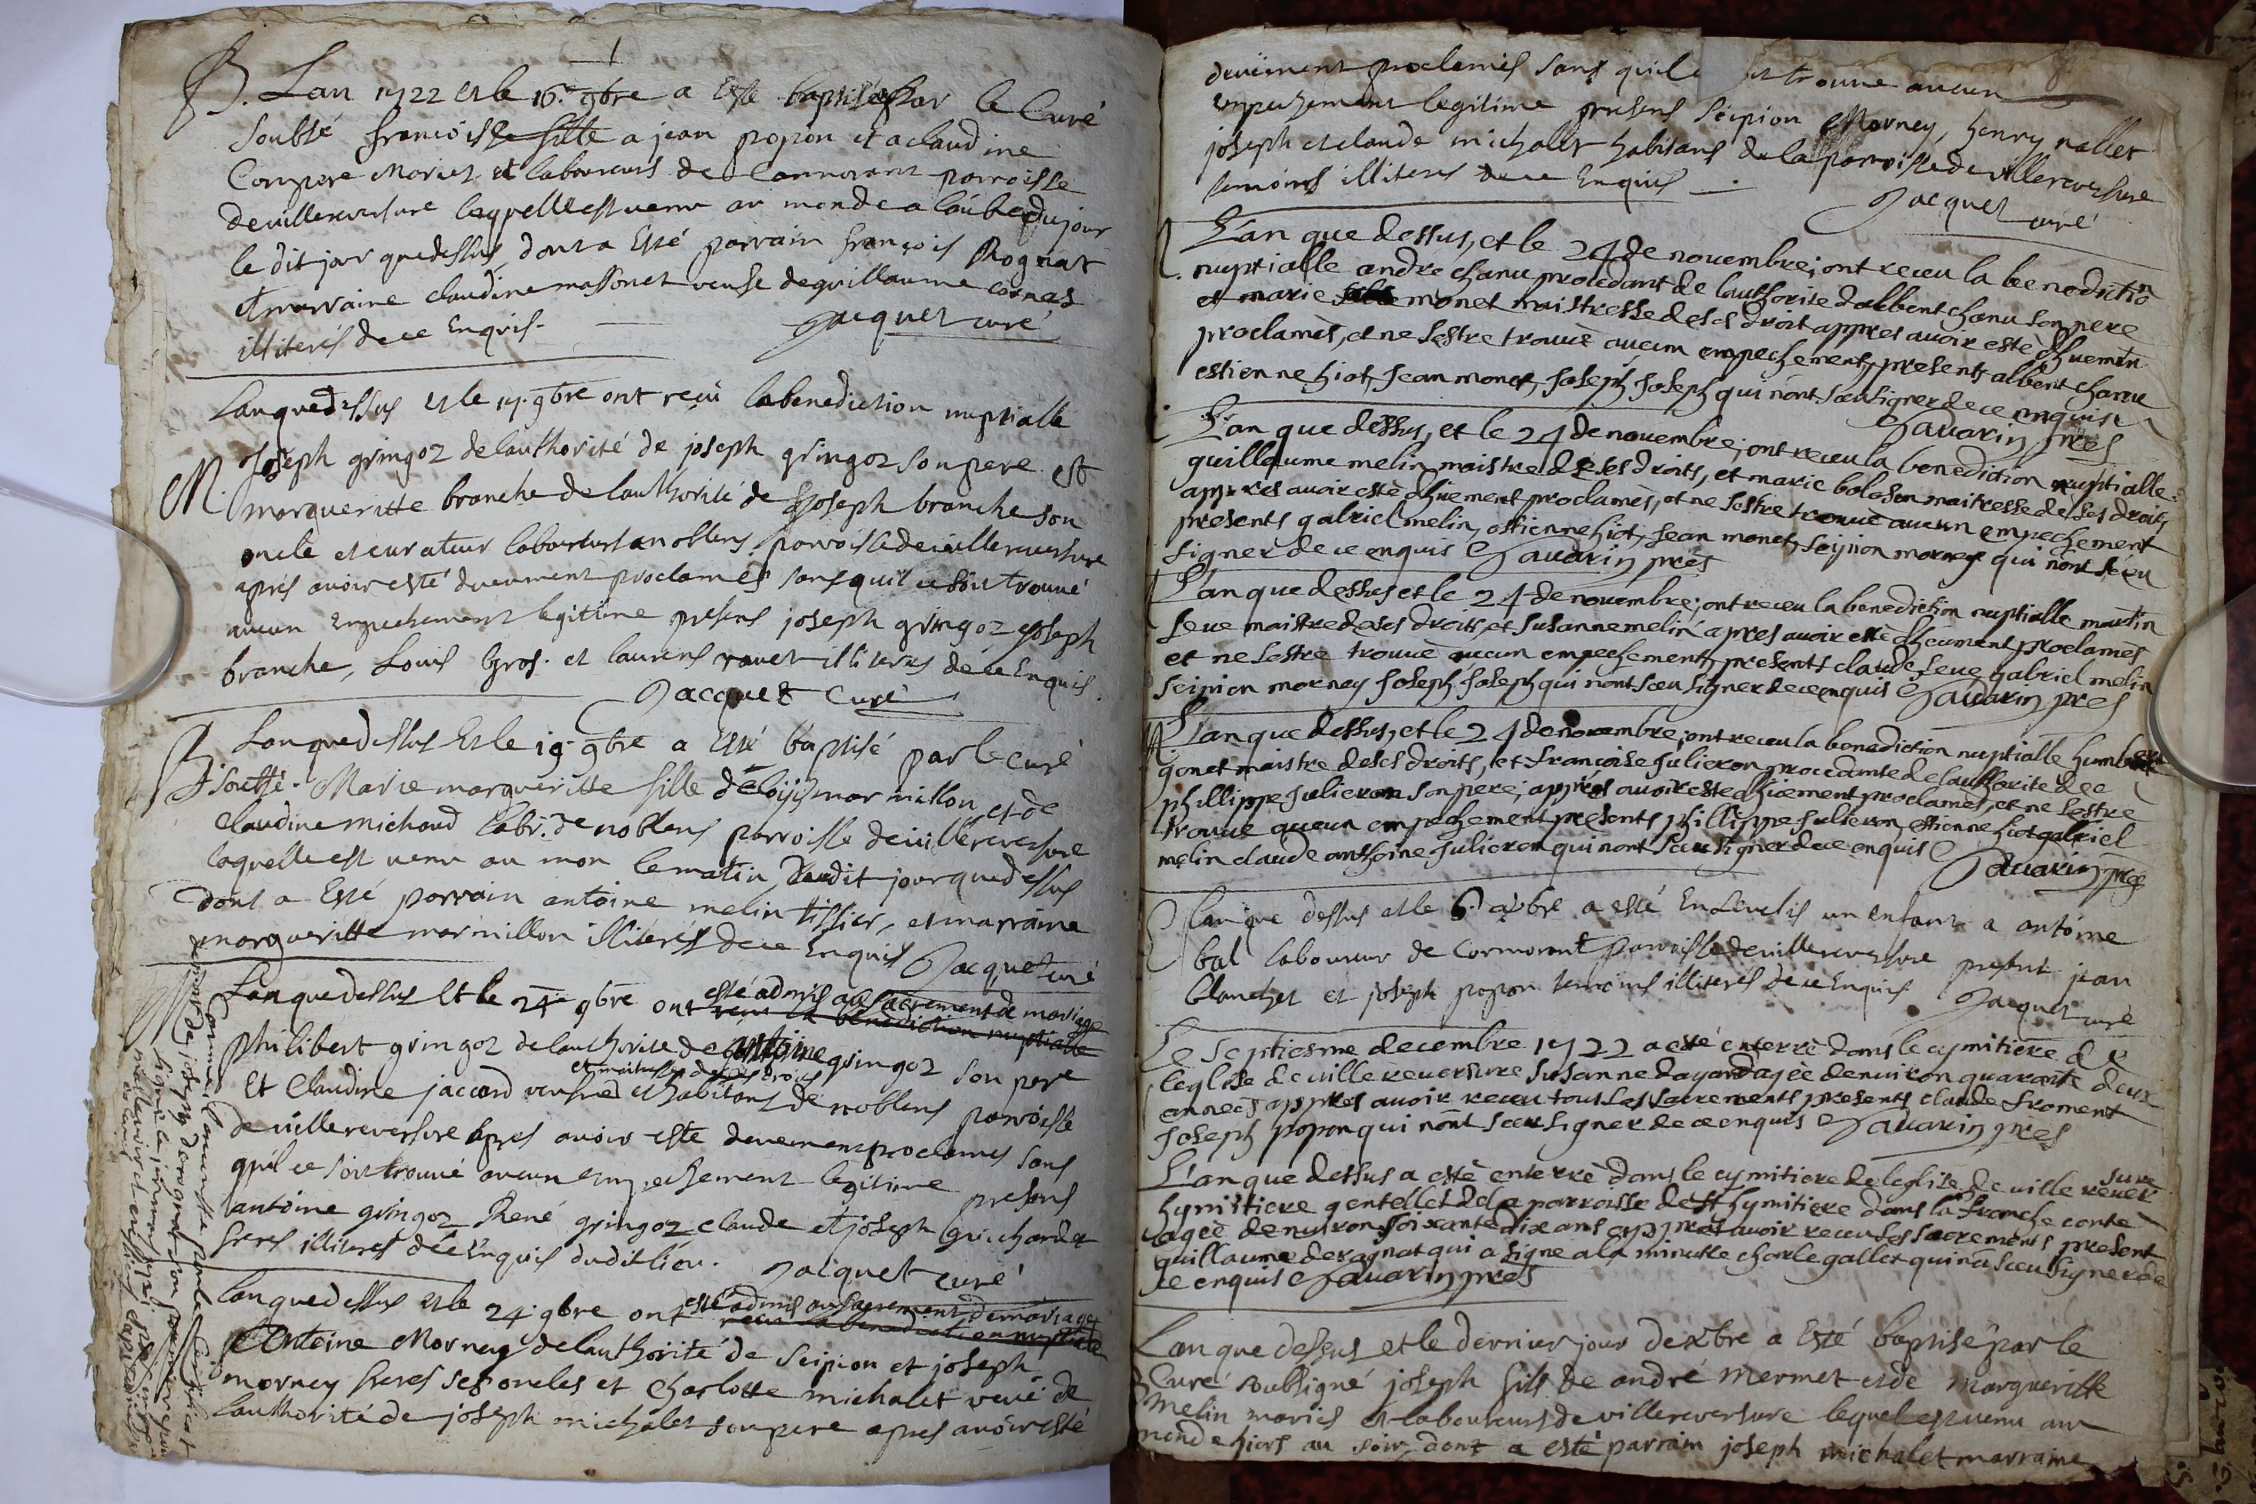 B. Lan 1722 et le 16.e 9bre a Esté baptisé par le Curé
soubsé françoise fille a jean popon et a claudine
Compere Mariez et laboureurs de Cormorant parroisse
de villereversure laquelle est venu au monde a laube du jour
le dit jour que dessus, dont a Esté parrain françois Rognat
et marraine claudine massonet veufve de guillaume cornas
illiterés de ce Enquis.
Jacquet curé
Lan que dessus et le 17. 9bre ont reçu la benediction nuptialle
M. Joseph gringoz de lauthorité de joseph gringoz son pere et
margueritte branche de lauthorité de Joseph branche son
oncle et curateur laboureurs a noblens parroisse de villereversure
apres avoir esté duement proclamés sans quil ce soit trouvé
aucun Empechement legitime presens joseph gringoz joseph
branche, Louis gros. et laurens ravet illiteres de ce Enquis.
Jacquet Curé
B Lan que dessus Et le 19. 9bre a Esté baptisé par le curé
soussé. Marie margueritte fille de loÿs marmillon et de
Claudine michaud labr. de noblens parroisse de villereversure
laquelle est venu au mon le matin dudit jour que dessus
dont a Esté parrain antoine melin tissier, et marraine
margueritte marmillon illiterés de ce Enquis
Jacquet curé
Lan que dessus Et le 24e 9bre ont esté admis au sacrement de mariage
receu la benediction nuptialle
philibert gringoz de lauthorité de antoine gringoz son pere
et maitresse de ses droits
Et Claudine jaccard veufve et habitans de noblens parroisse
de villereversure apres avoir este duement proclames sans
quil ce soit trouvé aucun empechement legitime presens
antoine gringoz René gringoz claude et joseph guichardet
freres illiteres de ce Enquis dudit lieu.
Jacquet curé
Lan que dessus et le 24. 9bre ont esté admis au sacrement de mariage
receu la benediction nuptialle
Antoine Morney de lauthorité de scipion et joseph
morney freres ses oncles et Charlotte michalet veue de
lauthorité de joseph michalet son pere apres avoir esté
deuëment proclamés sans quil ce soit trouve aucun
empechement legitime presens Scipion Morney, henry nallet
joseph et claude michallet habitans de la parroisse de villereversure
temoins illiteres de ce Enquis
Jacquet curé
L'an que dessus, et le 24 de novembre; ont receu la benediction
nuptialle andre chanu procedant de lauthorite dalbent chanu son pere
et marie monet maistresse de ses droit appres avoir esté dhuemen
proclamès, et ne sestre trouvè aucun empechement, presents albent chanu
estienne hiot, Jean monet, Joseph Joseph qui n'ont sceu signer de ce enquis
Savarin pres
L'an que dessus, et le 24 de novembre; ont receu la benediction nuptialle
guillaume melin maistre de ses droits, et marie boloson maitresse de ses droits
appres avoir estè dhuement proclamès, et ne sestre trouvè aucun empechement
presents gabriel melin, estienne hiot, Jean monet, Scipion morney qui n'ont sceu
signer de ce enquis Savarin pres
L'an que dessus et le 24 de novembre; ont receu la benediction nuptialle martin
seve maistre de ses droits, et Susanne melin apres avoir estè dheument proclamès
et ne sestre trouvè aucun empechement, presents claude seve, gabriel melin
Scipion morney Joseph Joseph qui n'ont sceu signer de ce enquis Savarin pres
L'an que dessus, et le 24 de novembre; ont receu la benediction nuptialle humbert
gonet maistre de ses droits, et francoise Julieron procedante de lauthorite de
phillippe Julieron son pere; apprès avoir este dhuement proclamès, et ne sestre
trouve aucun empechement presents phillippe Julieron, estienne hiot gabriel
melin claude anthoine Julieron qui n'ont sceu signer de ce enquis
Savarin pre
lan que dessus et le 6. xbre a esté Enseuelis un enfant a antoine
bal laboureur de Cormorant parroisse de villereversure present jean
blanchet et joseph popon temoins illiterés de ce Enquis
Jacquet curé
Le Septiesme decembre 1722 a esté enterrè dans le cymitiere de
leglise de villereversure Susanne dayard agèe denviron quarante deux
années appres avoir receu tous les sacrements presents claude froment
Joseph popon qui n'ont sceu signer de ce enquis Savarin pres
L'an que dessus a estè enterrè dans le cymitiere de leglise de ville rever
sure
hymittiere gentellet de la parroisse de St hymitiere dans la franche conte
agèe denviron soixante dix ans appres avoir receu ses sacrements present
guillaume deragnat qui a signe a la minutte charle gallet qui n'a sceu signer de
ce enquis Savarin pres
Lan que dessus et le dernier jour de xbre a Esté baptisé par le
Curé soubsigné joseph fils de andré mermet et de margueritte
Melin mariés et laboureurs de villereversure lequel est venu au
monde hiers au soir, dont a esté parrain joseph michalet marraine